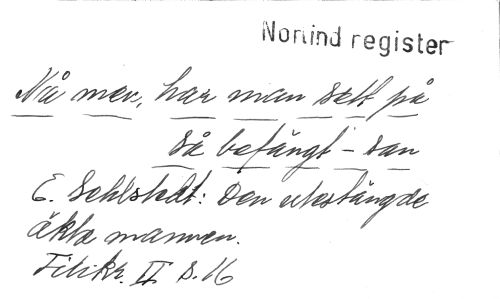 Norlind register
Nå men, har man sett på
så befängt – san
E. Sehlstedt: Den utestängde
äkta mannen.
Filikr. II s. 16